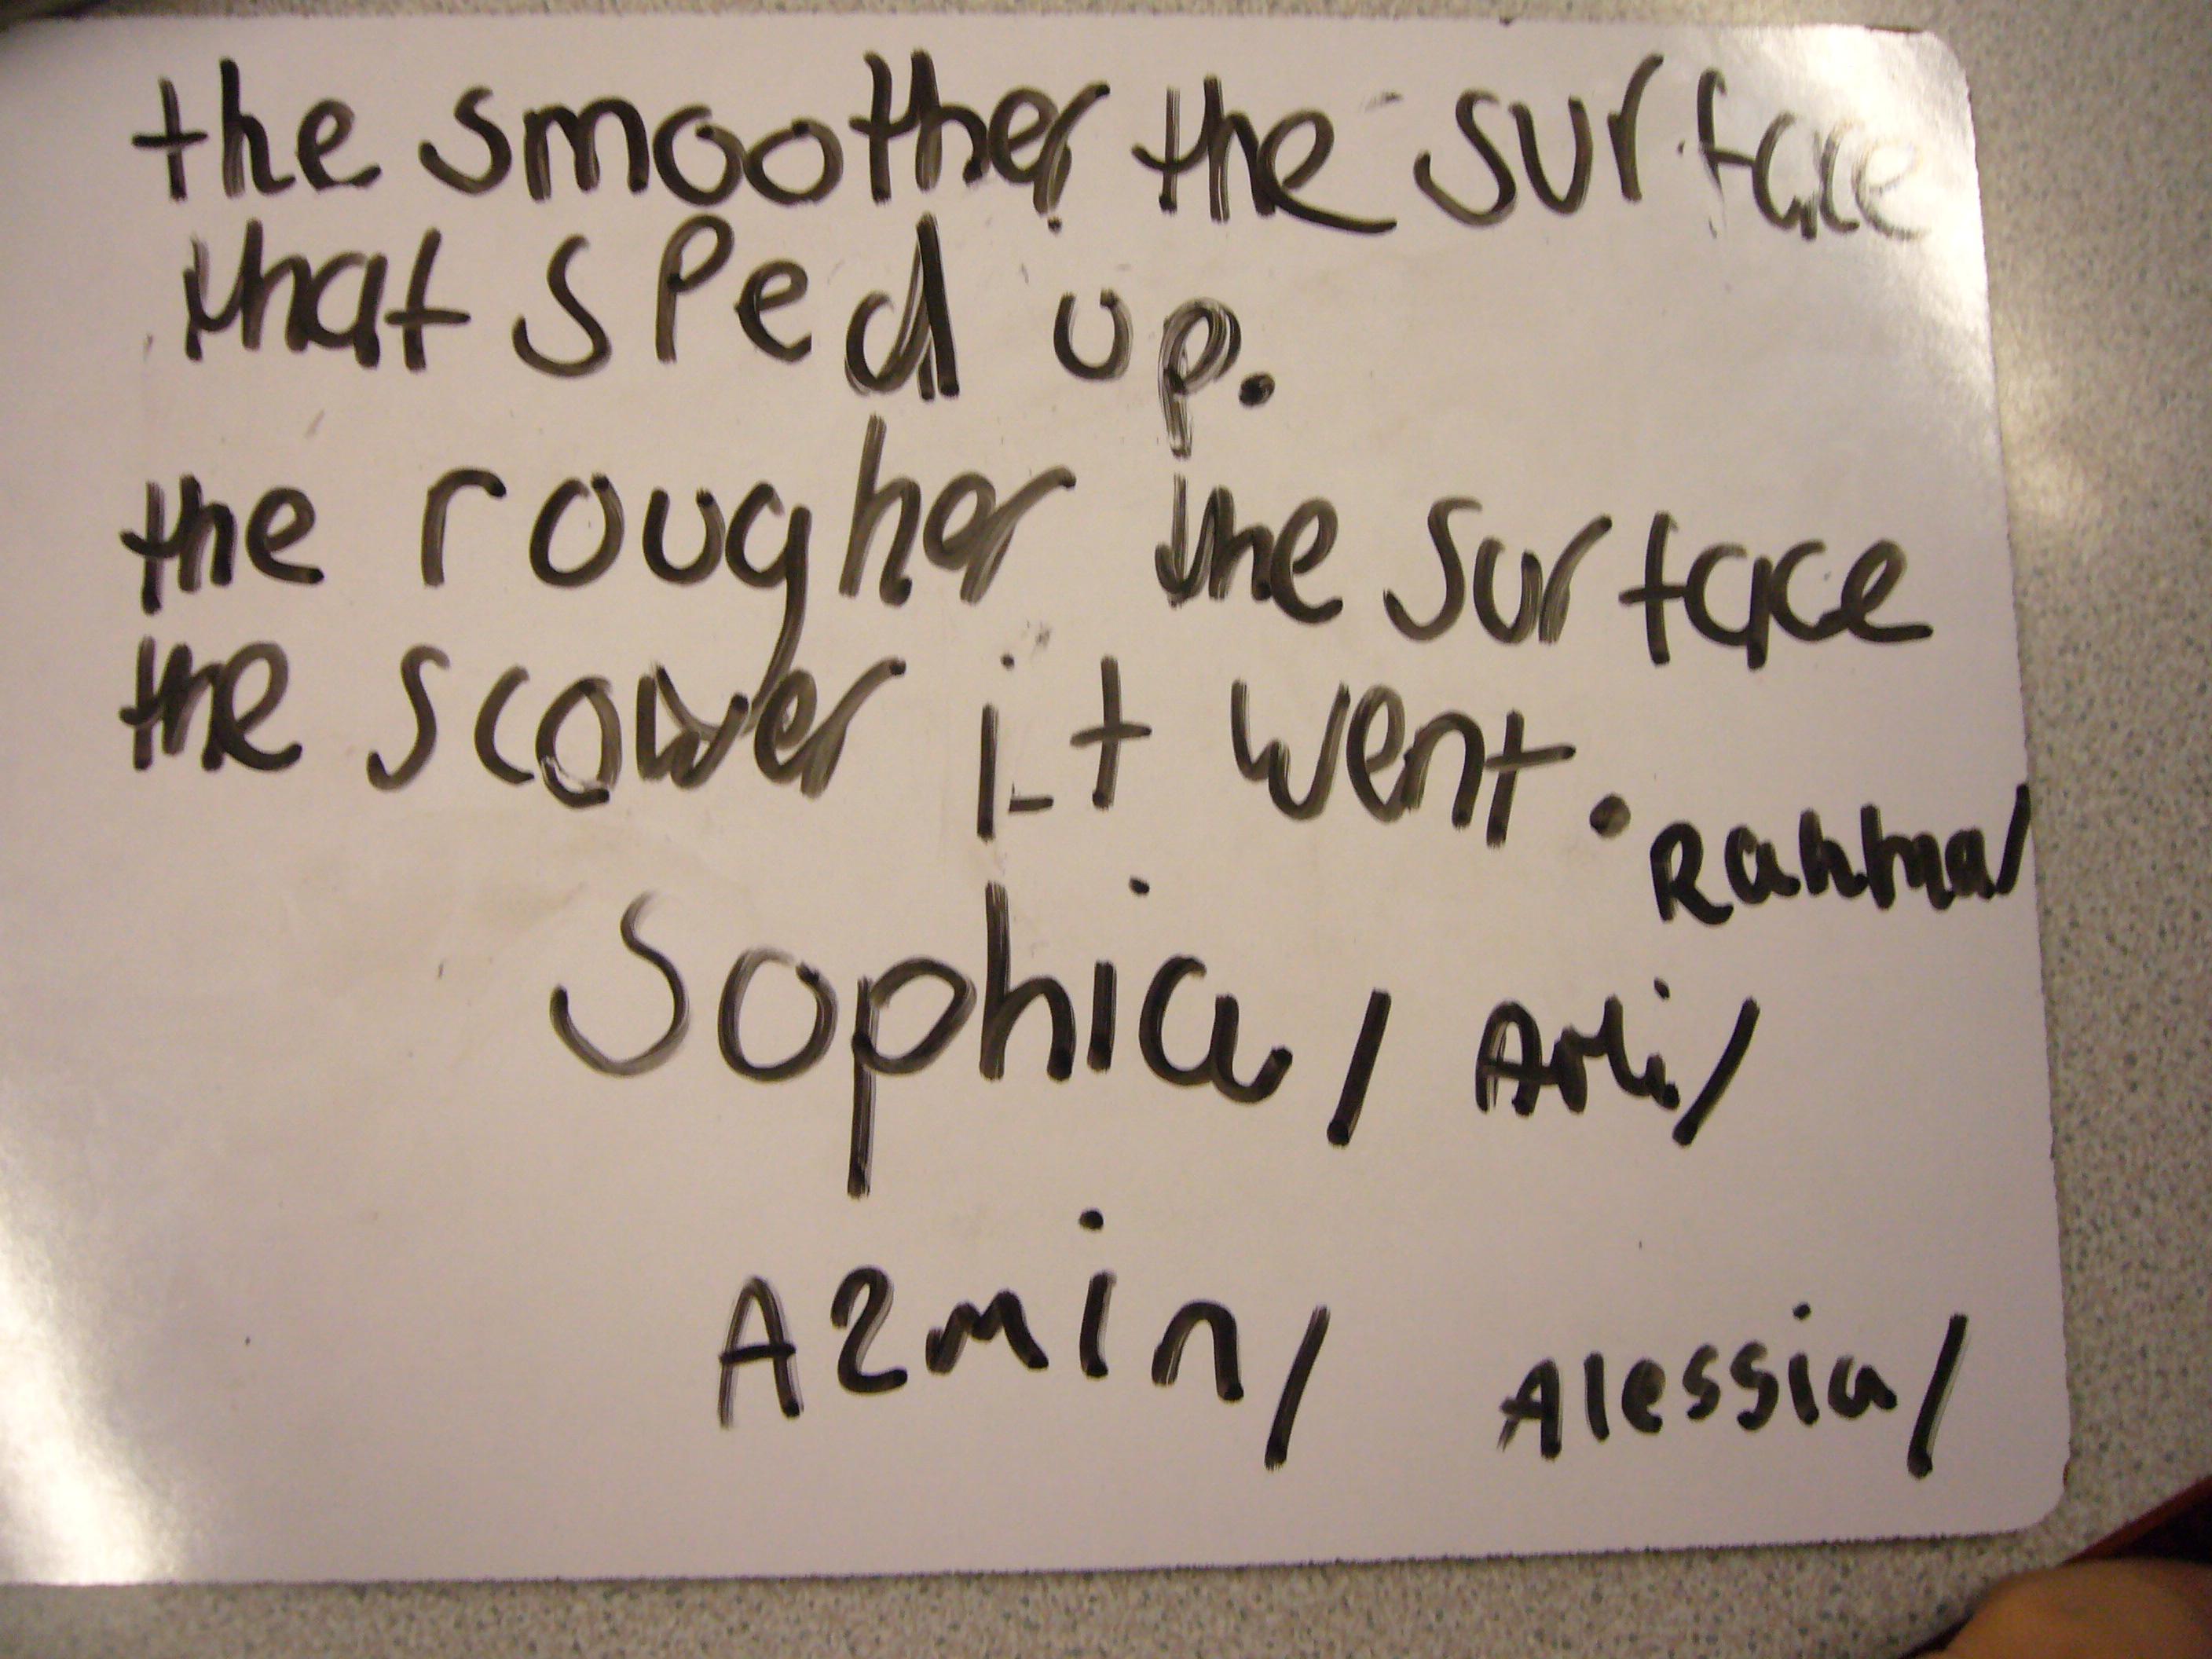 the smoother the surface
that sped up.
the rougher the surface
the scower it went.
Rahma/
Sophia/ Arli/
Azmin/ Alessia/